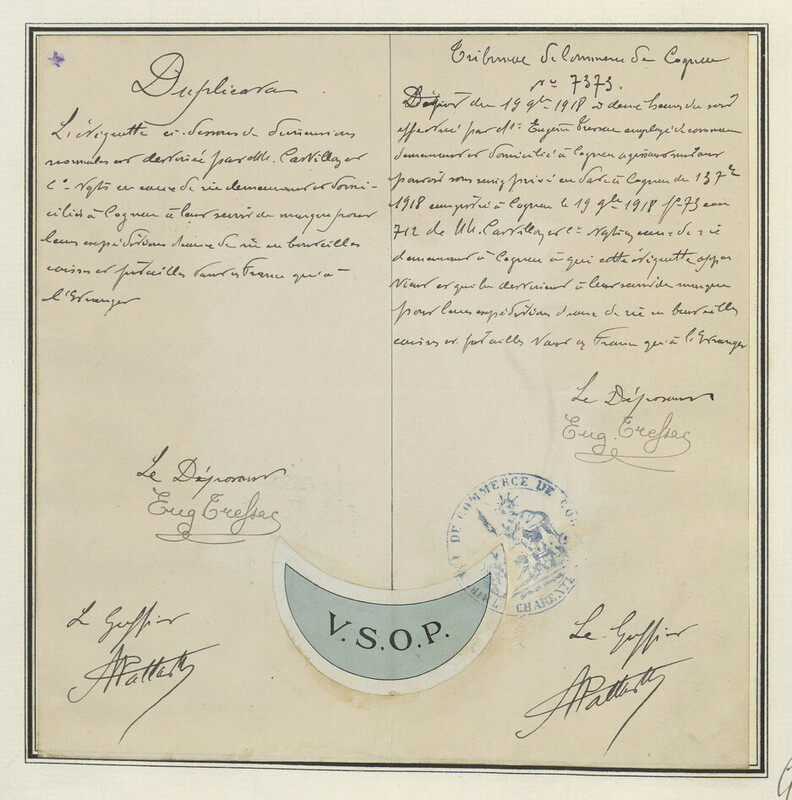 Duplicata
L'étiquette ci-dessus de dimensions
normales est destinée par M. Castillon et
Cie Ngts en eaux de vie demeurant et domi-
ciliés à Cognac à leur servir de marque pour
leurs expéditions d'eaux de vie en bouteilles
caisses et futailles tant en France qu'à
l'Etranger
Le Déposant
Eug Tressac
Le Greffier
Tribunal de Commerce de Cognac
No 7373.
Dépôt du 19 9bre 1918 à deux heures du soir
effectué par Mr. Eugène Tressac employé de commerce
demeurant et domicilié à Cognac agissant suivant
pouvoir sous seing privé en date à Cognac du
1918 enregistré à Cognac le 19 9bre 1918 fo 73 case
712 de MM. Castillon et Cie Ngts en eaux de vie
demeurant à Cognac à qui cette étiquette appar
tient et qui la destinent à leur servir de marque
pour leurs expéditions d'eaux de vie en bouteilles
caisses et futailles tant en France qu'à l'Etranger
Le Déposant
Eug. Tressac
DE COMMERCE DE
CHARENTE
V.S.O.P.
Le Greffier